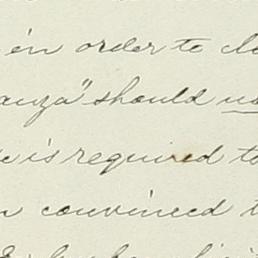 in order to
anza" should
is required to
convinced